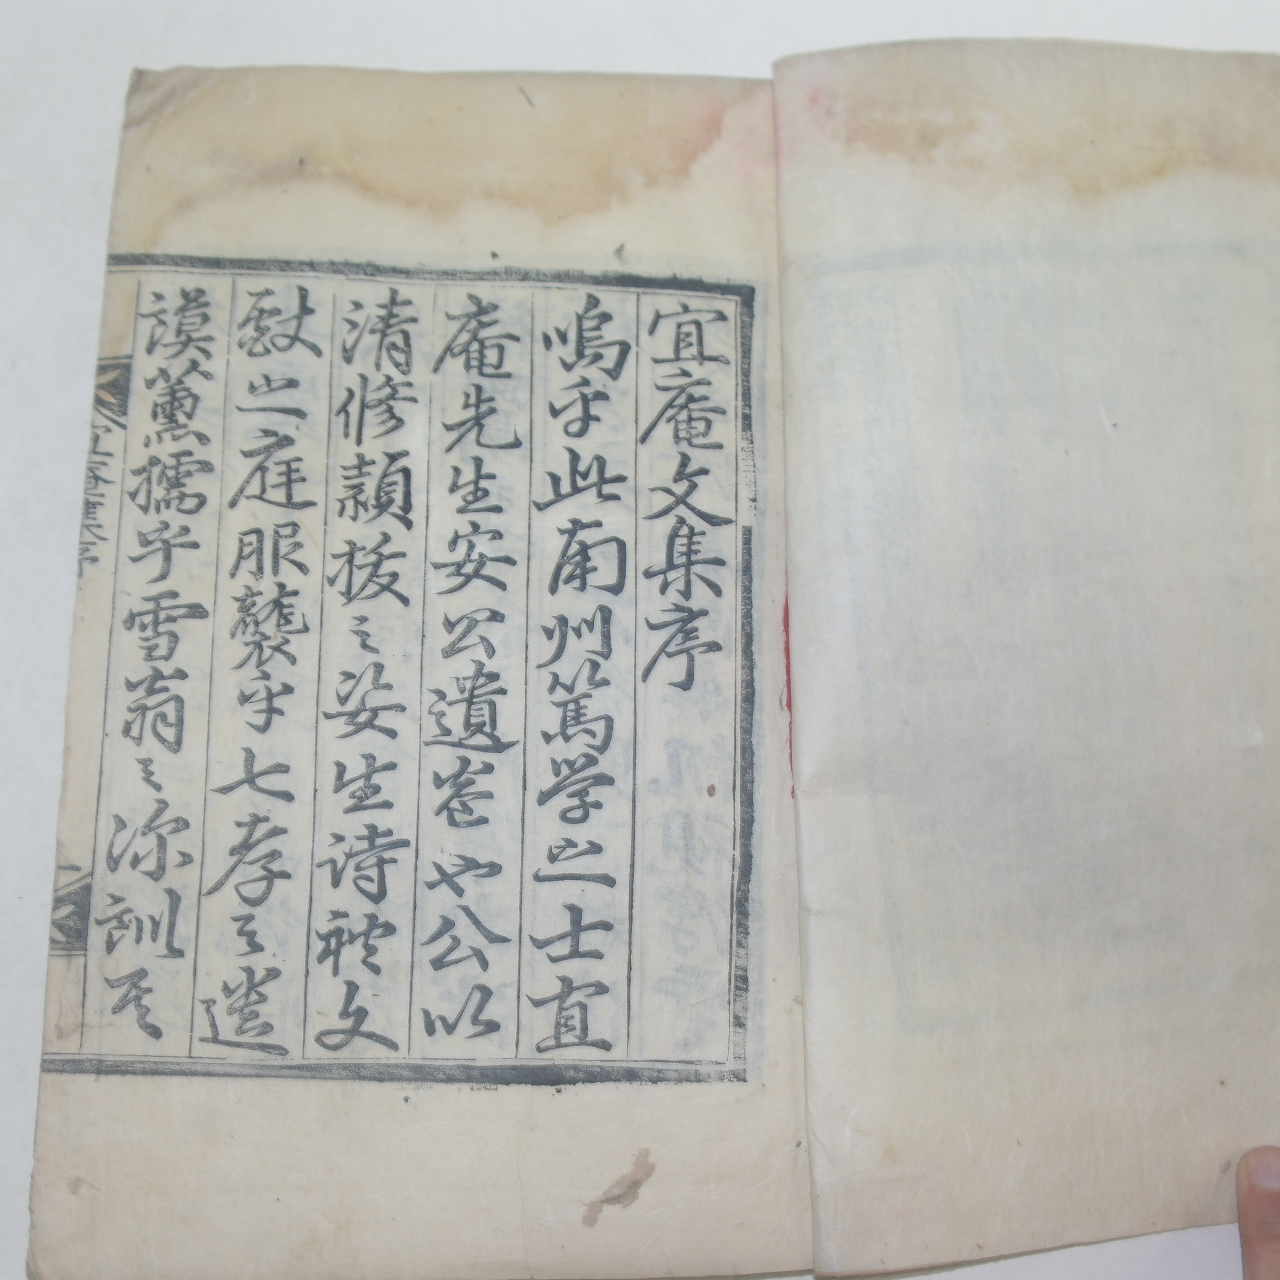 宜庵文集序
嗚乎此南州篤学之士宜
庵先生安公遺卷也公以
清修穎拔之姿生詩礼文
獻之庭服襲乎七孝之遺
謨薰擩乎雪翁之深訓其
宜庵集序